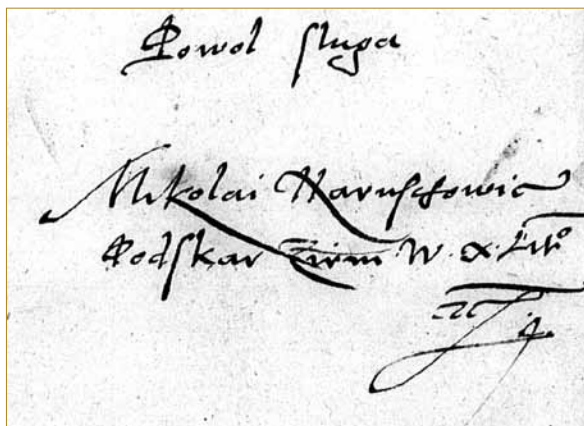 Powol sluga
Mikolai Naruschowic
Podskar Ziem W. X. Litº